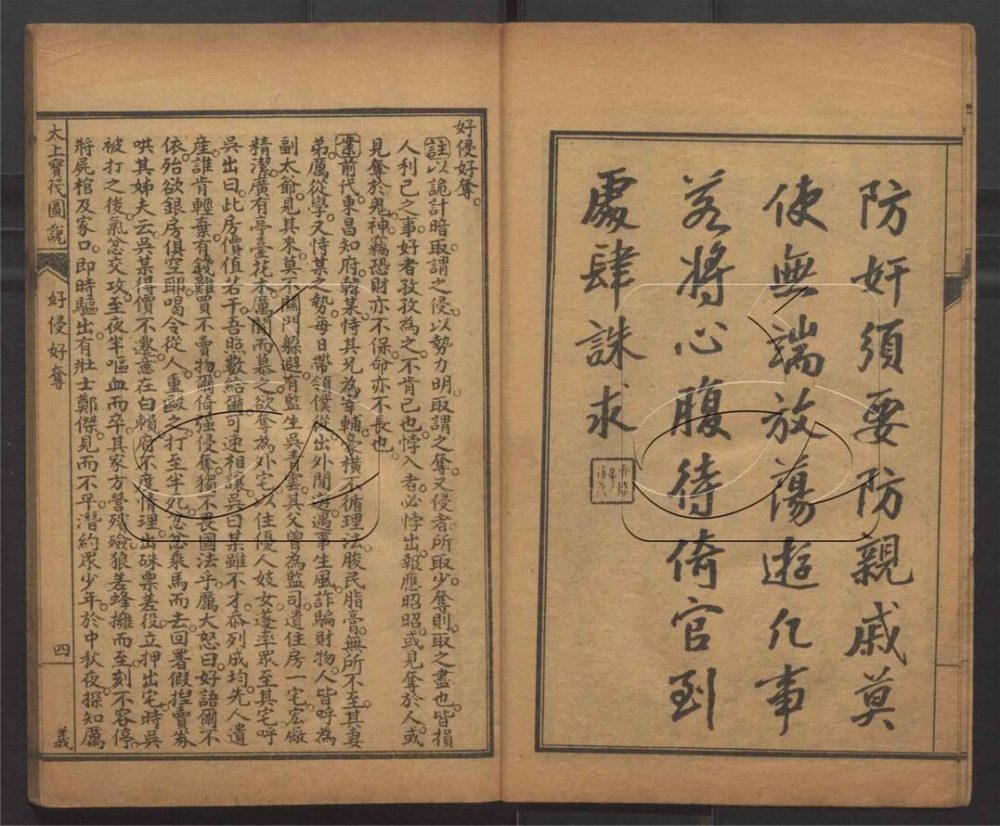 防奸須要防親戚莫
使無端放蕩遊凡事
若將心腹待倚官到
處肆誅求
好侵好奪。
註以詭計暗取謂之侵以勢力明取謂之奪又侵者所取少奪則取之盡也皆損
人利己之事好者孜孜為之不肯已也悖入者必悖出報應昭昭或見奪於人或
見奪於鬼神竊恐財亦不保命亦不長也
案前代東昌知府韓某恃其兄為宰輔豪橫不循理法朘民脂膏無所不至其妻
弟厲從學又恃某之勢每日帶領僕從出外閒遊遇事生風詐騙財物人皆呼為
副太爺見其來莫不關門躲避有監生吳青雲其父曾為監司遺住房一宅宏敞
精潔廣有亭臺花木厲聞而慕之欲奪為外宅以住優人妓女遂率眾至其宅呼
吳出曰此房價值若干吾照數給爾可速相讓吳曰某雖不才忝列成均先人遺
產誰肯輕棄有錢難買不賣物爾倚強侵奪獨不畏國法乎厲大怒曰好語爾不
依殆欲銀房俱空耶喝令從人重毆之打至半死忿忿乘馬而去回署假揑賣劵
哄其姊夫云吳某得價不搬意在白賴府不度情理出硃票差役立押出宅時吳
被打之後氣忿交攻至夜半嘔血而卒其家方營殯殮狼差蜂擁而至刻不容停
將屍棺及家口即時驅出有壯士鄭傑見而不平潛約眾少年於中秋夜探知厲
太上寶筏圖說
好侵好奪
四
義